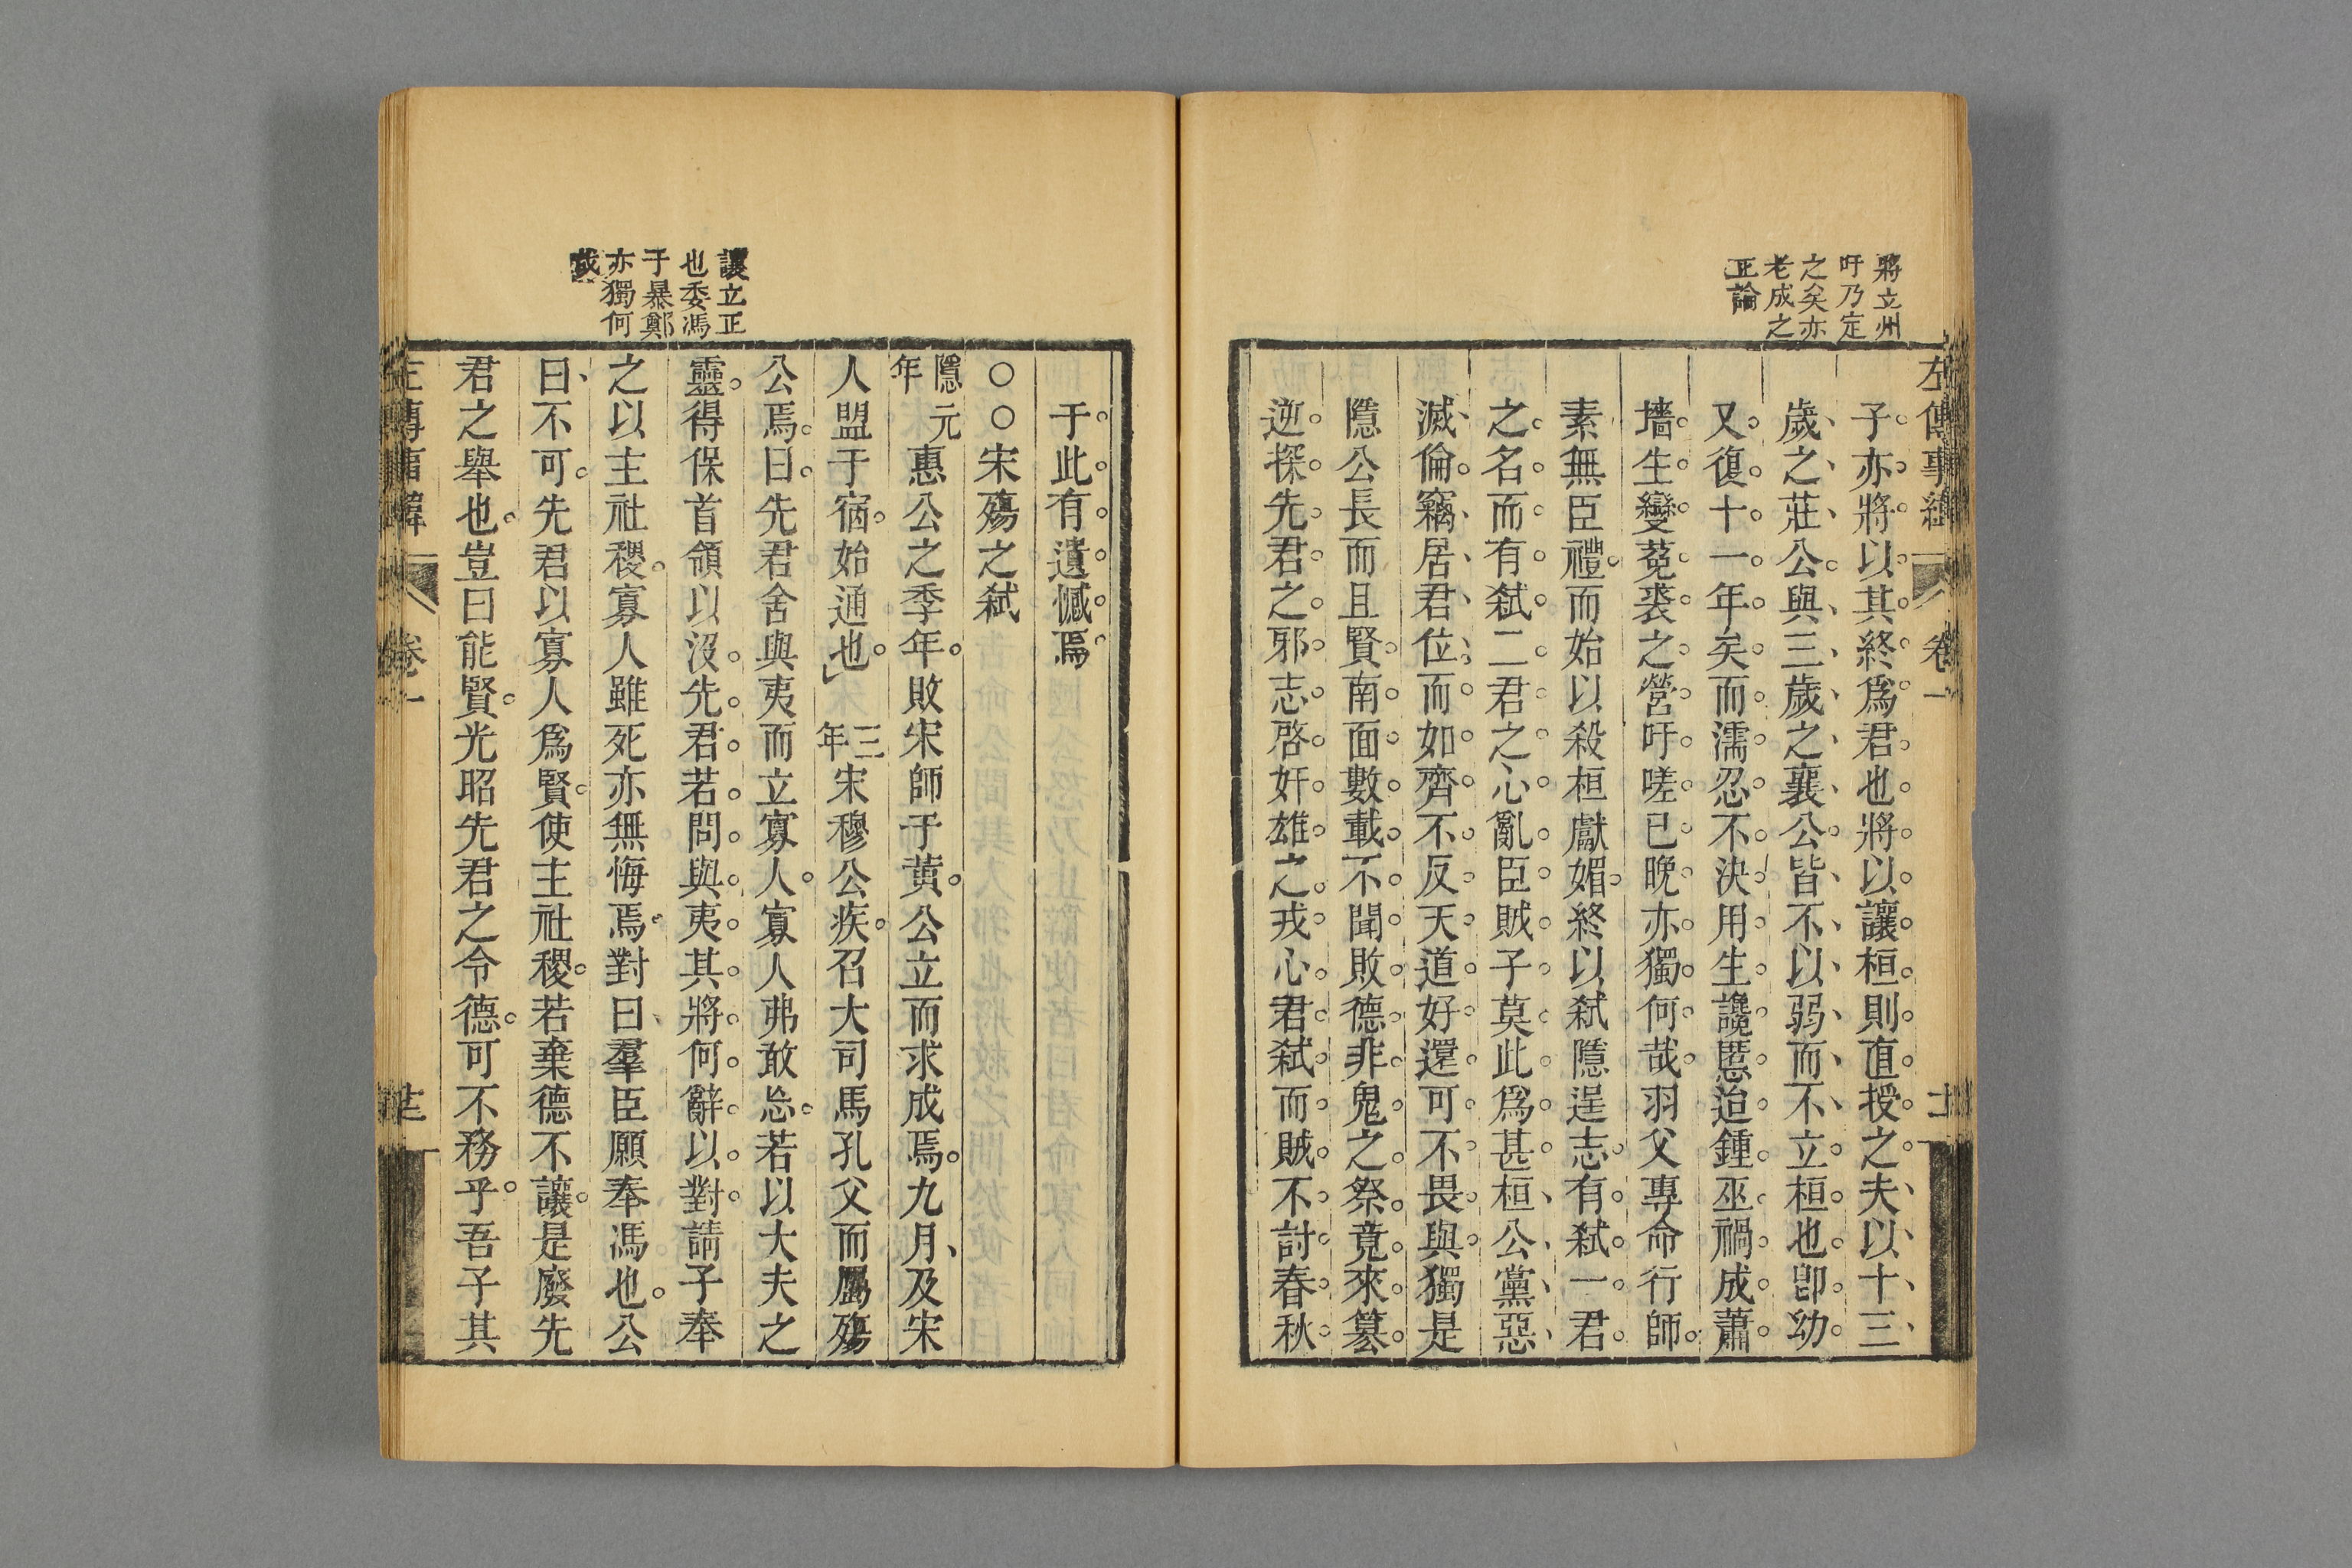 將立州
吁乃定
之矣亦
老成之
正論
左傳事緯
卷一
子亦將以其終爲君也將以讓桓則直授之夫以十三
歲之莊公與三歲之襄公皆不以弱而不立桓也卽幼
又復十一年矣而濡忍不決用生讒慝迨鍾巫禍成蕭
墻生變菟裘之營吁嗟已晚亦獨何哉羽父專命行師
素無臣禮而始以殺桓獻媚終以弑隱逞志有弑一君
之名而有弑二君之心亂臣賊子莫此爲甚桓公黨惡
滅倫竊居君位而如齊不反天道好還可不畏與獨是
隱公長而且賢南面數載不聞敗德非鬼之祭竟來篡
逆探先君之邪志啓奸雄之戎心君弑而賊不討春秋
讓立正
也委馮
于暴鄭
亦獨何
哉
于此有遺憾焉
○○宋殤之弑
隱元年惠公之季年敗宋師于黃公立而求成焉九月及宋
人盟于宿始通也三年宋穆公疾召大司馬孔父而屬殤
公焉曰先君舍與夷而立寡人寡人弗敢忘若以大夫之
靈得保首領以沒先君若問與夷其將何辭以對請子奉
之以主社稷寡人雖死亦無悔焉對曰羣臣願奉馮也公
曰不可先君以寡人爲賢使主社稷若棄德不讓是廢先
君之舉也豈曰能賢光昭先君之令德可不務乎吾子其
左傳事緯
卷一